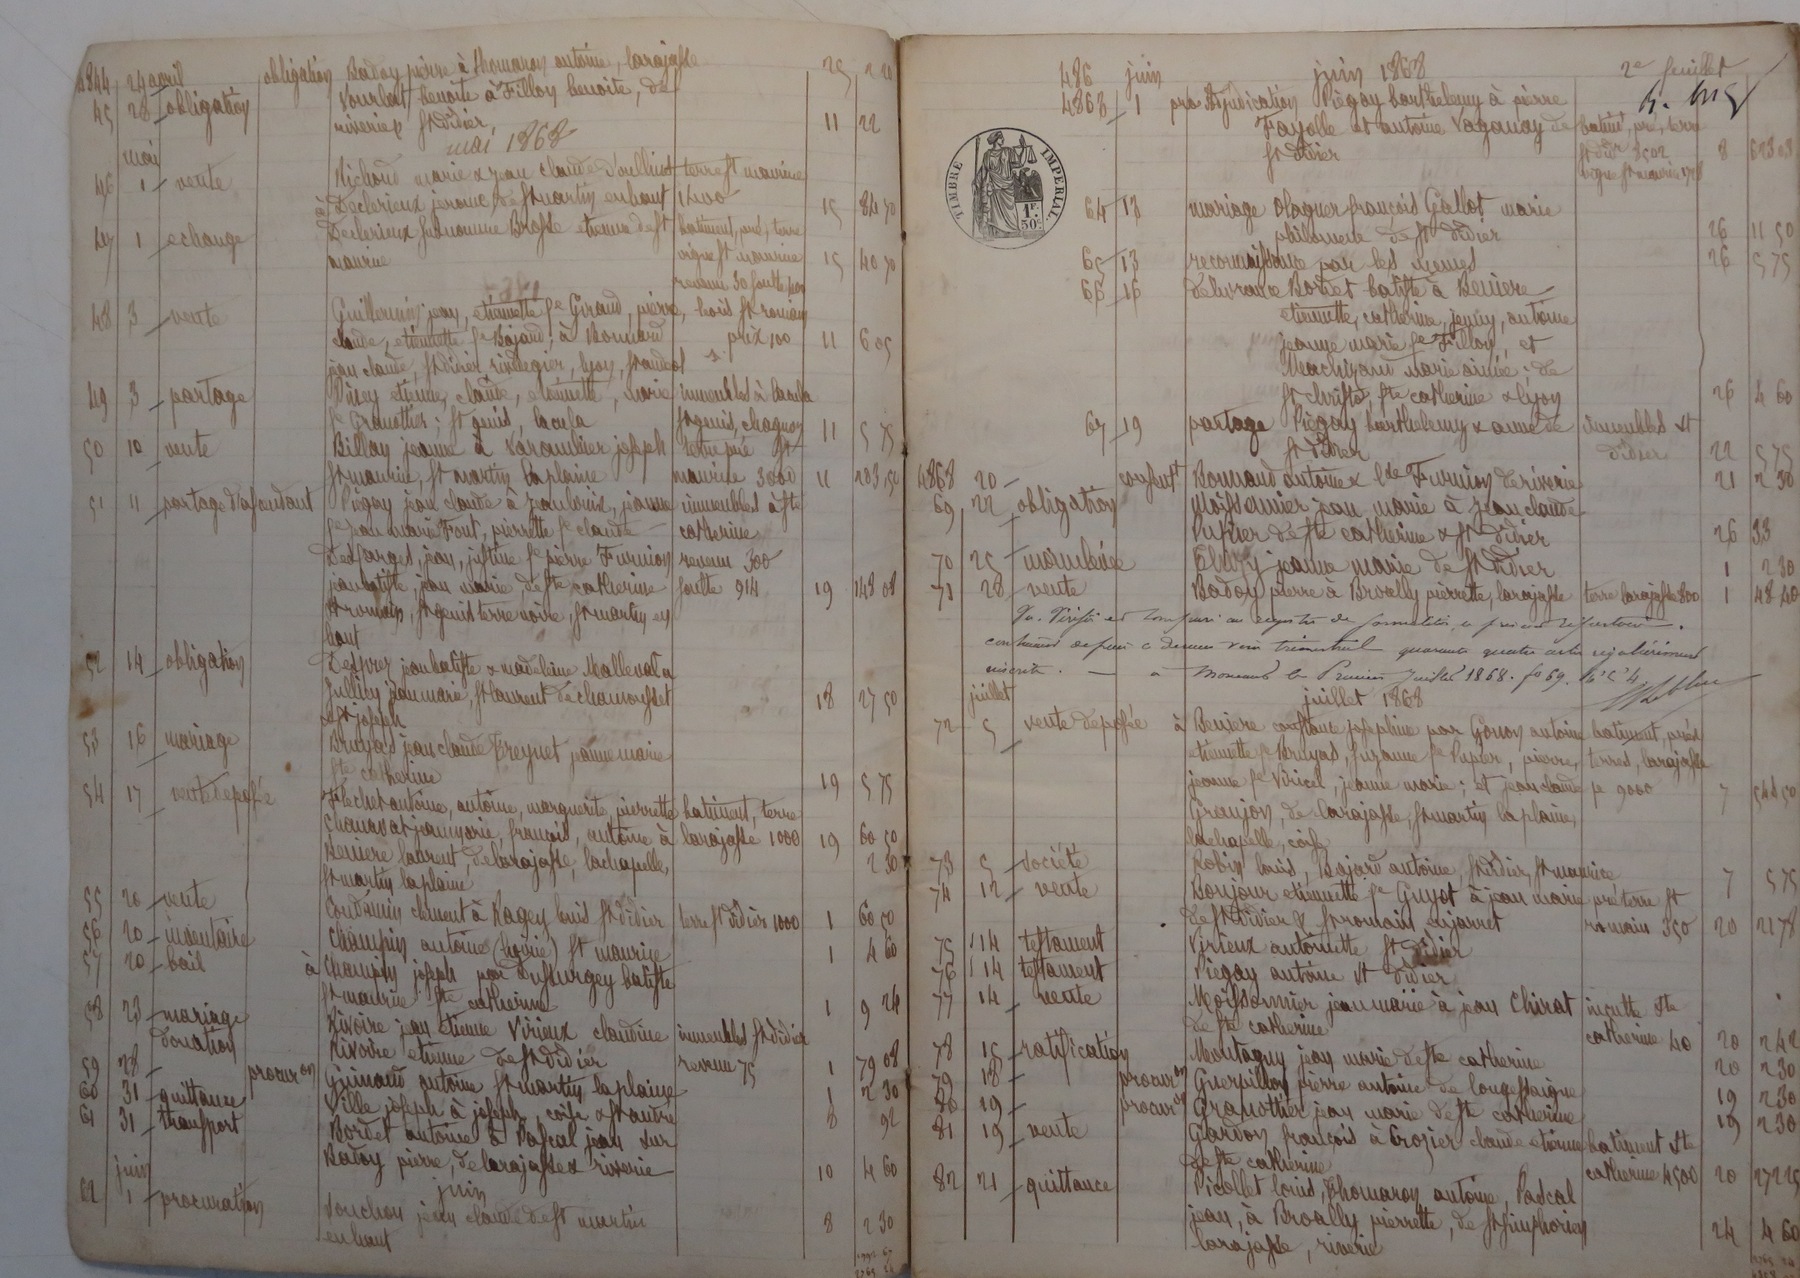 4844 24 avril obligation Badoy pierre à thomaron antoine, larajasse 25 2 20
45 28 obligation Vourlat benoite à Fillon benoite, de
riverie & st didier, 11 22
mai mai 1868
46 1 vente Richoud marie & jean claude d'oullins terre st maurice
à Declerieux jerome, de st martin en haut 1400 15 84 70
47 1 echange Declerieux surnommé Brosse etienne de st batiment, pré, terre
maurice vigne st maurine 15 40 70
revenu 30 soulte 500
48 3 vente Guillermin jean, etiennette fe Giraud, pierre, bois st romain
claude, etiennette fe Bajard; à Bonnard prix 100 11 6 05
jean claude, st didier, rivedegier, lyon, st andeol
49 3 partage Piney etienne, claude, etiennette, marie immeubles à lacula
fe Granottier; st genis, lacula st genis, chagnon 11 5 75
50 10 vente Billon jeanne à Varambier joseph terre pré st
st maurice, st martin la plaine maurice 3000 11 203,50
51 11 partage d'ascendant Piegay jean claude à jean louis, jeanne immeubles à ste
fe jean marie Font, pierrette fe claude catherine
Desfarges, jean, justine fe pierre Furnion revenu 300
jean batiste, jean marie, de ste catherine soulte 914 19 148 08
st romain, st genis terre noire, st martin en
haut
52 14 obligation Desfours jean batiste & madeleine Malleval à
Jullien jean marie, st laurent de chamousset 18 27 50
& st joseph
53 16 mariage Bruyas jean claude Breynet jeanne marie
ste catherine 19 5 75
54 17 vente deposée Flechet antoine, antoine, marguerite, pierrette batiment, terre
Chanavat jean marie, françois, antoine à larajasse 1000 19 60 50
Beniere laurent, de larajasse, lachapelle, 2 30
st martin la plaine
55 20 vente Coudamin clement à Ragey louis st didier terre st didier 1000 1 60 50
56 20 inventaire Champin antoine (hoirie) st maurice 1 4 60
57 20 bail à Champin joseph par Dussurgey batiste
st maurice ste catherine 1 9 24
58 23 mariage Rivoire jean etienne Virieux claudine immeubles st didier
donation Rivoire etienne de st didier revenu 75 1 79 08
59 28 procuron Grimaud antoine st martin la plaine 1 2 30
60 31 quittance Ville joseph à joseph, coise & st andré 8 92
61 31 transport Bordet antoine à Pascal jean sur
Badoy pierre, de larajasse & riverie 10 4 60
juin juin
62 1 procuration Souchon jean claude de st martin
en haut 8 2 30
486 juin juin 1868 2e feuillet
4863 1 pro Adjudication Piegay barthelemy à pierre
Fayolle et antoine Vaganay de batiment, pré, terre
st didier 8
TIMBRE IMPERIAL
1 F.
50 C.
64 13 mariage Olagner françois Gallot marie
philomene de st didier 26 11 50
65 13 reconnaissance par les memes 26 5 75
66 16 delivrance Bordet batiste à Beniere
etiennette, catherine, jenny, antoine
jeanne marie fe Fillon, et
marie aimée; de
st christo, ste catherine & lyon 26 4 60
67 19 partage Piegay barthelemy & anne de immeubles st
st didier didier 22 5 75
4868 20 Bonnard antoine & Furnion de riverie 21 2 30
69 22 obligation Moissonnier jean marie à jean claude
Pupier de ste catherine & st didier 26 33
70 25 mainlevée jeanne marie de st didier 1 2 30
71 28 vente Badoy pierre à Broally pierrette, larajasse terre larajasse 800 1 48 40
quarante quatre actes régulièrement
inscrits. — à Mornant le Premier Juillet 1868. fo 69.
juillet juillet 1868
72 5 vente deposée à Beniere constance josephine par Gonon antoine batiment, prés
etiennette fe Bruyas, suzanne fe Pupier, pierre, terres, larajasse
jeanne fe Viricel, jeanne marie; et jean claude pr 9000 7 544 50
Grenjon, de larajasse, st martin la plaine,
lachapelle, coise
73 5 société Robin louis, Bajard antoine, st didier, st maurice 7 5 75
74 12 vente Bonjour etiennette fe Guyot à jean marie pré terre st
de st didier & st romain en jarret romain 350 20 21 78
75 14 testament Virieux antoinette st didier
76 14 testament Piegay antoine st didier
77 14 vente Moissonnier jean marie à jean Chirat inculte ste
de ste catherine catherine 40 20 2 42
78 15 ratification Montagny jean marie de ste catherine 20 2 30
79 18 procuron Guerpillon pierre antoine de longessaigne 19 2 30
80 19 procuron Granottier jean marie de ste catherine 19 2 30
81 19 vente Gardon françois à Crozier claude etienne batiment ste
de ste catherine catherine 4500 20 272 25
82 21 quittance Picollet louis, thomaron antoine, Pascal
jean, à Broally pierrette, de st simphorien
larajasse, riverie 24 4 60